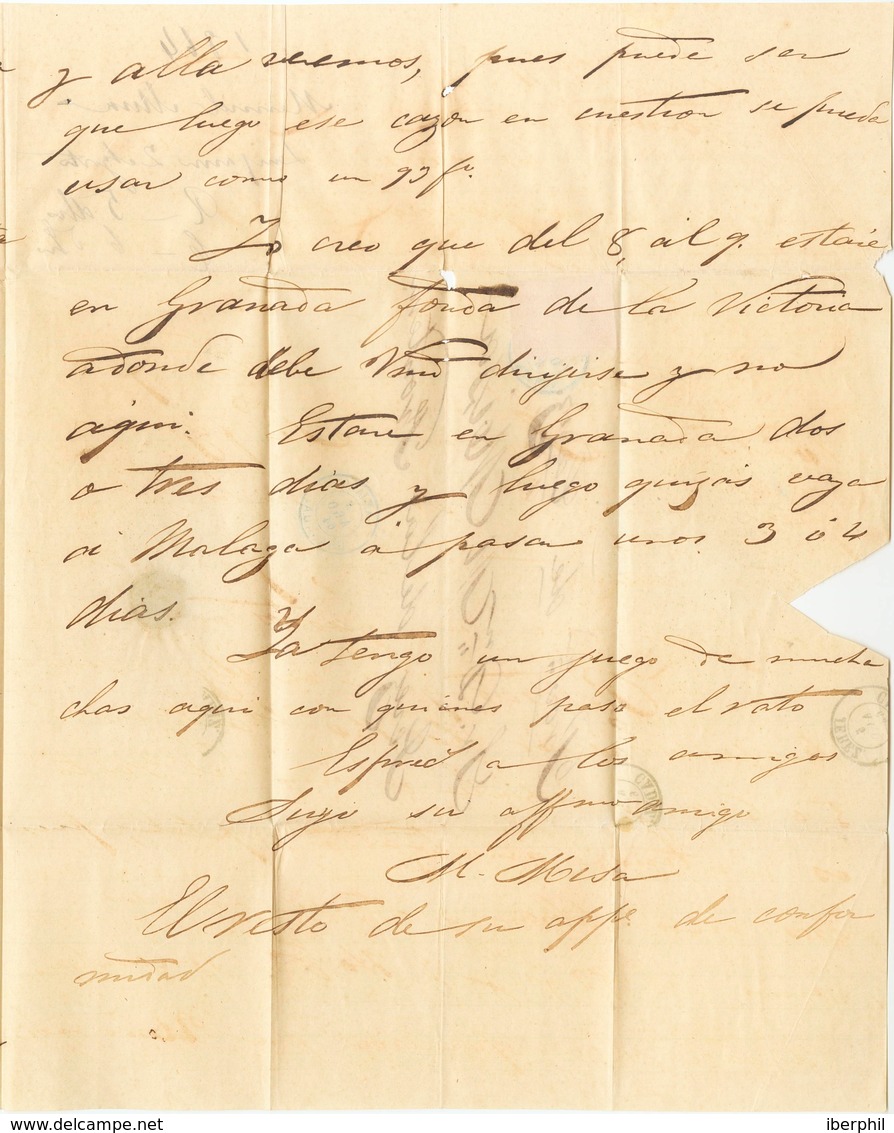 y alla veremos, pues puede ser
que luego ese cazon en cuestion se pueda
usar como un
Yo creo que del 8, al 9. estare
en Granada fonda de la Victoria
adonde debe Vmd dirijirse y no
aqui. Estare en Granada dos
o tres dias y luego quizás vaya
á Malaga á pasar unos 3 ó 4
dias.
Ya tengo un juego de mucha
chas aqui con quienes paso el rato
a los amigos
Suyo su affmo amigo
M. Mesa
El resto de su de confor
midad
www.delcampe.net
iberphil